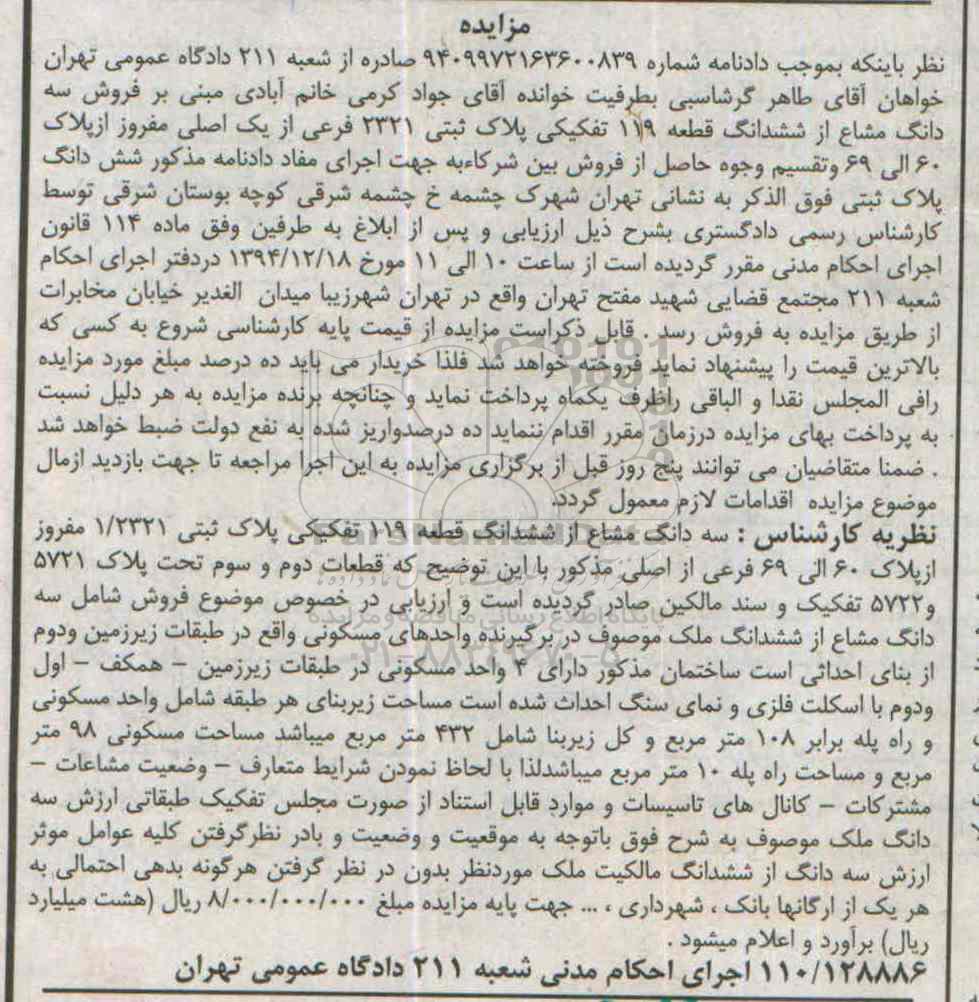 مزایده
نظر باینکه بموجب دادنامه شماره ۹۴۰۹۹۷۲۱۶۳۶۰۰۸۳۹ صادره از شعبه ۲۱۱ دادگاه عمومی تهران
خواهان آقای طاهر گرشاسبی بطرفیت خوانده آقای جواد کرمی خانم آبادی مبنی بر فروش سه
دانگ مشاع از ششدانگ قطعه ۱۱۹ تفکیکی پلاک ثبتی ۲۳۲۱ فرعی از یک اصلی مفروز ازپلاک
۶۰ الی ۶۹ وتقسیم وجوه حاصل از فروش بین شرکاءبه جهت اجرای مفاد دادنامه مذکور شش دانگ
پلاک ثبتی فوق الذکر به نشانی تهران شهرک چشمه خ چشمه شرقی کوچه بوستان شرقی توسط
کارشناس رسمی دادگستری بشرح ذیل ارزیابی و پس از ابلاغ به طرفین وفق ماده ۱۱۴ قانون
اجرای احکام مدنی مقرر گردیده است از ساعت ۱۰ الی ۱۱ مورخ ۱۳۹۴/۱۲/۱۸ دردفتر اجرای احکام
شعبه ۲۱۱ مجتمع قضایی شهید مفتح تهران واقع در تهران شهرزیبا میدان الغدیر خیابان مخابرات
از طریق مزایده به فروش رسد . قابل ذکراست مزایده از قیمت پایه کارشناسی شروع به کسی که
بالاترین قیمت را پیشنهاد نماید فروخته خواهد شد فلذا خریدار می باید ده درصد مبلغ مورد مزایده
رافی المجلس نقدا و الباقی راظرف یکماه پرداخت نماید و چنانچه برنده مزایده به هر دلیل نسبت
به پرداخت بهای مزایده درزمان مقرر اقدام ننماید ده درصدواریز شده به نفع دولت ضبط خواهد شد
. ضمنا متقاضیان می توانند پنج روز قبل از برگزاری مزایده به این اجرا مراجعه تا جهت بازدید ازمال
موضوع مزایده اقدامات لازم معمول گردد
نظریه کارشناس : سه دانگ مشاع از ششدانگ قطعه ۱۱۹ تفکیکی پلاک ثبتی ۱/۲۳۲۱ مفروز
ازپلاک ۶۰ الی ۶۹ فرعی از اصلی مذکور با این توضیح که قطعات دوم و سوم تحت پلاک ۵۷۲۱
و۵۷۲۲ تفکیک و سند مالکین صادر گردیده است و ارزیابی در خصوص موضوع فروش شامل سه
دانگ مشاع از ششدانگ ملک موصوف در برگیرنده واحدهای مسکونی واقع در طبقات زیرزمین ودوم
از بنای احداثی است ساختمان مذکور دارای ۴ واحد مسکونی در طبقات زیرزمین - همکف - اول
ودوم با اسکلت فلزی و نمای سنگ احداث شده است مساحت زیربنای هر طبقه شامل واحد مسکونی
و راه پله برابر ۱۰۸ متر مربع و کل زیربنا شامل ۴۳۲ متر مربع میباشد مساحت مسکونی ۹۸ متر
مربع و مساحت راه پله ۱۰ متر مربع میباشدلذا با لحاظ نمودن شرایط متعارف - وضعیت مشاعات -
مشترکات - کانال های تاسیسات و موارد قابل استناد از صورت مجلس تفکیک طبقاتی ارزش سه
دانگ ملک موصوف به شرح فوق باتوجه به موقعیت و وضعیت و بادر نظرگرفتن کلیه عوامل موثر
ارزش سه دانگ از ششدانگ مالکیت ملک موردنظر بدون در نظر گرفتن هرگونه بدهی احتمالی به
هر یک از ارگانها بانک ، شهرداری ، ... جهت پایه مزایده مبلغ ۸/۰۰۰/۰۰۰/۰۰۰ ریال (هشت میلیارد
ریال) برآورد و اعلام میشود .
۱۱۰/۱۲۸۸۸۶ اجرای احکام مدنی شعبه ۲۱۱ دادگاه عمومی تهران